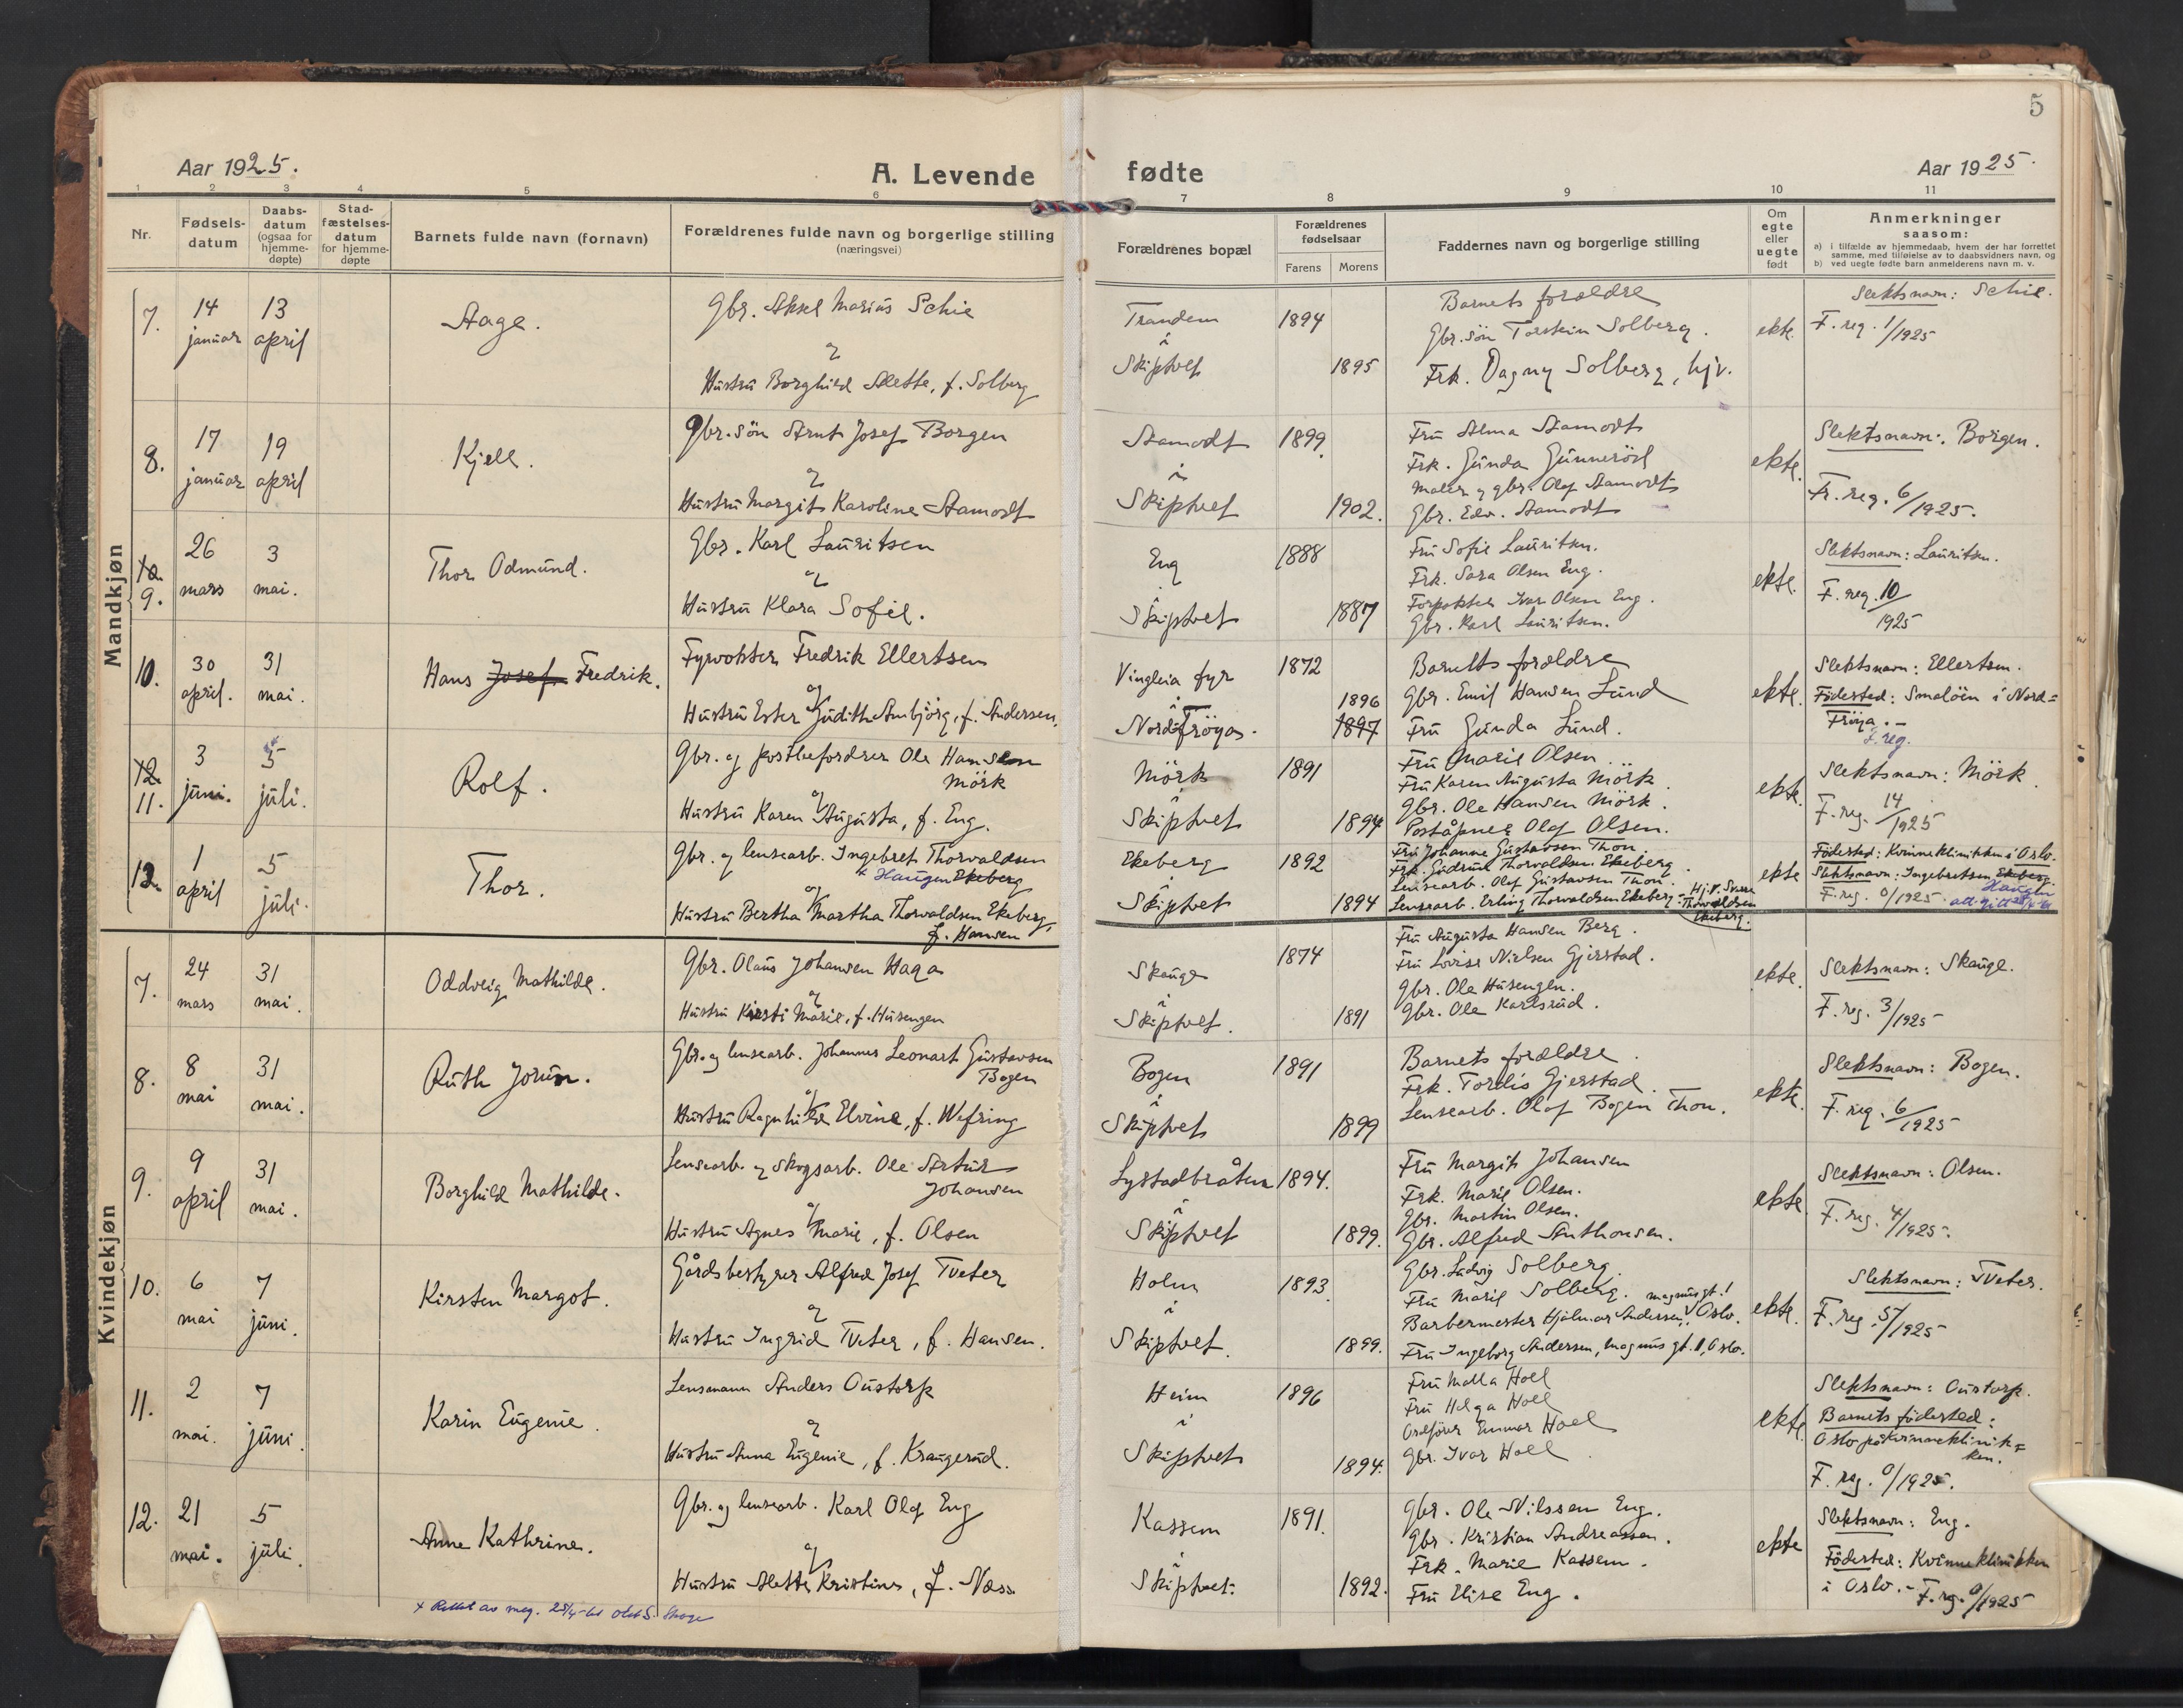 5
Aar 1925.
A. Levende fødte
Aar 1925.
1 2 3 4 5 6 7 8 9 10 11
Nr.
Fødsels-
datum
Daabs-
datum
(ogsaa for
hjemme-
døpte)
Stad-
fæstelses-
datum
for hjemme-
døpte
Barnets fulde navn (fornavn)
Forældrenes fulde navn og borgerlige stilling
(næringsvei)
Forældrenes bopæl
Forældrenes
fødselsaar
Farens Morens
Faddernes navn og borgerlige stilling
Om
egte
eller
uegte
født
Anmerkninger
saasom:
a) i tilfælde av hjemmedaab, hvem der har forrettet
samme, med tilføielse av to daabsvidners navn, og
b) ved uegte fødte barn anmelderens navn m. v.
Mandkjøn
7.
14
januar
13
april
Aage.
Gbr. Aksel Marius Schie
og
Hustru Borghild Alette, f. Solberg
Trandem
i
Skiptvet
1894
1895
Barnets forældre
Gbr.sön Torstein Solberg.
Frk. Dagny Solberg, hjv.
ekte.
Slektsnavn: Schie.
F. reg. 1/1925
8.
17
januar
19
april
Kjell.
Gbr.sön Arnt Josef Borgen
og
Hustru Margit Karoline Aamodt
Aamodt
i
Skiptvet
1899.
1902.
Fru Alma Aamodt
Frk. Gunda Gunneröd
Maler og gbr. Olaf Aamodt
Gbr. Edv. Aamodt
ekte.
Slektsnavn: Borgen.
Fr. reg. 6/1925.
10.
9.
26
mars
3
mai.
Thor Odmund.
Gbr. Karl Lauritsen
og
Hustru Klara Sofie.
Eng
i
Skiptvet
1888
1887
Fru Sofie Lauritsen.
Frk. Sara Olsen Eng.
Forpakter Ivar Olsen Eng.
Gbr. Karl Lauritsen.
ekte.
Slektsnavn: Lauritsen.
F. reg. 10/
1925
10.
30
april.
31
mai.
Hans Josef Fredrik.
Fyrvokter Fredrik Ellertsen
og
Hustru Ester Judith Anbjörg, f. Andersen.
Vingleia fyr
i
Nord-Fröya.
1872
1896
1897
Barnets forældre
Gbr. Emil Hansen Lund
Fru Gunda Lund.
ekte.
Slektsnavn: Ellertsen.
Födested: Smalöen i Nord=
Fröya.-
F. reg.
12.
11.
3
juni.
5
juli.
Rolf.
Gbr. og postbefordrer Ole Hansen
Mörk
og
Hustru Karen Augusta, f. Eng.
Mörk
i
Skiptvet
1891
1894
Fru Marie Olsen
Fru Karen Augusta Mörk.
Gbr. Ole Hansen Mörk.
Poståpner Olaf Olsen.
ekte.
Slektsnavn: Mörk
F. reg. 14/1925
12.
1
april
5
juli.
Thor.
Gbr. og lensearb. Ingebret Thorvaldsen
x Haugen Ekeberg
og
Hustru Bertha Martha Thorvaldsen Ekeberg,
f. Hansen
Ekeberg
i
Skiptvet
1892
1894
Fru Johanne Gustavsen Thon.
Frk. Gudrun Thorvaldsen Ekeberg.
Lensearb. Olaf Gustavsen Thon.
Lensearb. Erling Thorvaldsen Ekeberg - Hj.v. Svare
Thorvaldsen
Ekeberg.
ekte
Födested: Kvinneklinikken i Oslo.
Slektsnavn: Ingebretsen Ekeberg.
Haugen
F. reg. 0/1925. att. gitt
Kvindekjøn
7.
24
mars
31
mai.
Oddveig Mathilde.
Gbr. Olaus Johansen Haga
og
Hustru Kirsti Marie, f. Husengen
Skauge
i
Skiptvet.
1874
1891
Fru Augusta Hansen Berg.
Fru Lovise Nielsen Gjerstad.
Gbr. Ole Husengen.
Gbr. Ole Karlsrud.
ekte.
Slektsnavn: Skauge.
F. reg. 3/1925
8.
8
mai
31
mai.
Ruth Jorun.
Gbr. og lensearb. Johannes Leonart Gustavsen
Bogen
og
Hustru Ragnhild Elvine, f. Wefring
Bogen
i
Skiptvet
1891
1899
Barnets forældre.
Frk. Tordis Gjerstad.
Lensearb. Olaf Bogen Thon.
ekte.
Slektsnavn: Bogen.
F. reg. 6/1925
9.
9
april
31
mai.
Borghild Mathilde.
Lensearb. og skogsarb. Ole Artur
Johansen
og
Hustru Agnes Marie, f. Olsen
Lystadbråten
i
Skiptvet
1894.
1899.
Fru Margit Johansen
Frk. Marie Olsen.
Gbr. Martin Olsen.
Gbr. Alfred Anthonsen.
ekte
Slektsnavn: Olsen.
F. reg. 4/1925.
10.
6
mai
7
juni.
Kirsten Margot.
Gårdsbestyrer Alfred Josef Tveter
og
Hustru Ingrid Tveter, f. Hansen.
Holm
i
Skiptvet.
1893.
1899.
Gbr. Ludvig Solberg.
Fru Marie Solberg. magnusgt. 1
Barbermester Hjalmar Andersen, Oslo.
Fru Ingeborg Andersen, magnus gt. 1, Oslo.
ekte.
Slektsnavn: Tveter.
F. reg. 5/1925
11.
2
mai.
7
juni.
Karin Eugenie.
Lensmann Anders Oustorp
og
Hustru Anna Eugenie, f. Kraugerud.
Heim
i
Skiptvet
1896
1894.
Fru Malla Hoel
Fru Helga Hoel
Ordförer Gunnar Hoel
Gbr. Ivar Hoel
ekte.
Slektsnavn: Oustorp.
Barnets födested:
Oslo på kvinneklinik=
ken.
F. reg. 0/1925.
12.
21
mai.
5
juli.
Anne Kathrine.
Gbr. og lensearb. Karl Olaf Eng
og
Hustru Alette Kristine, f. Næss
Kassem
i
Skiptvet.
1891.
1892.
Gbr. Ole Nilssen Eng.
Gbr. Kristian Andreassen.
Frk. Marie Kassem.
Fru Elise Eng.
ekte
Slektsnavn: Eng.
Födested: Kvinneklinikken
i Oslo.- F. reg. 0/1925
x Rettet av meg. 25/4-